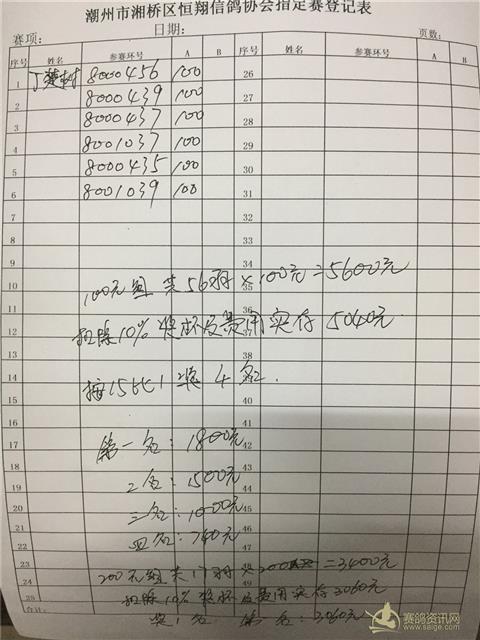 潮州市湘桥区恒翔信鸽协会指定赛登记表
赛项： 日期： 页数：
序号 姓名 参赛环号 A B 序号 姓名 参赛环号 A B
1 丁楚树 8000456 100 26
2 8000439 100 27
3 8000437 100 28
4 8001037 100 29
5 8000435 100 30
6 8001039 100 31
7 32
8 33
9 34
10 35
100元组共56羽×100元=5600元
11 36
12 37
扣除10%奖杯及费用实存5040元
13 38
14 39
按15比1奖4名.
15 40
16 41
17 42
第一名：1800元
18 43
19 44
二名：1500元
20 45
三名：1000元
21 46
22 47
四名：740元
23 48
200元组共17羽×200 =3400元
24 49
扣除10%奖杯及费用实存3060元
25
合计：
奖1名 第一名：3060元
赛鸽资讯网
www.saige.com